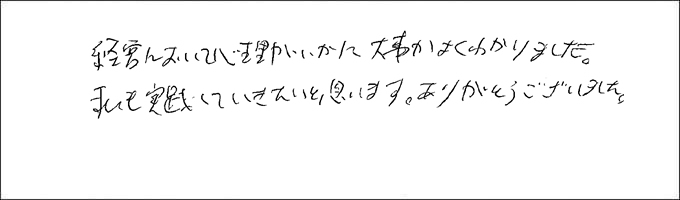 経営において心理がいかに大事かよくわかりました。
私も実践していきたいと思います。ありがとうございました。